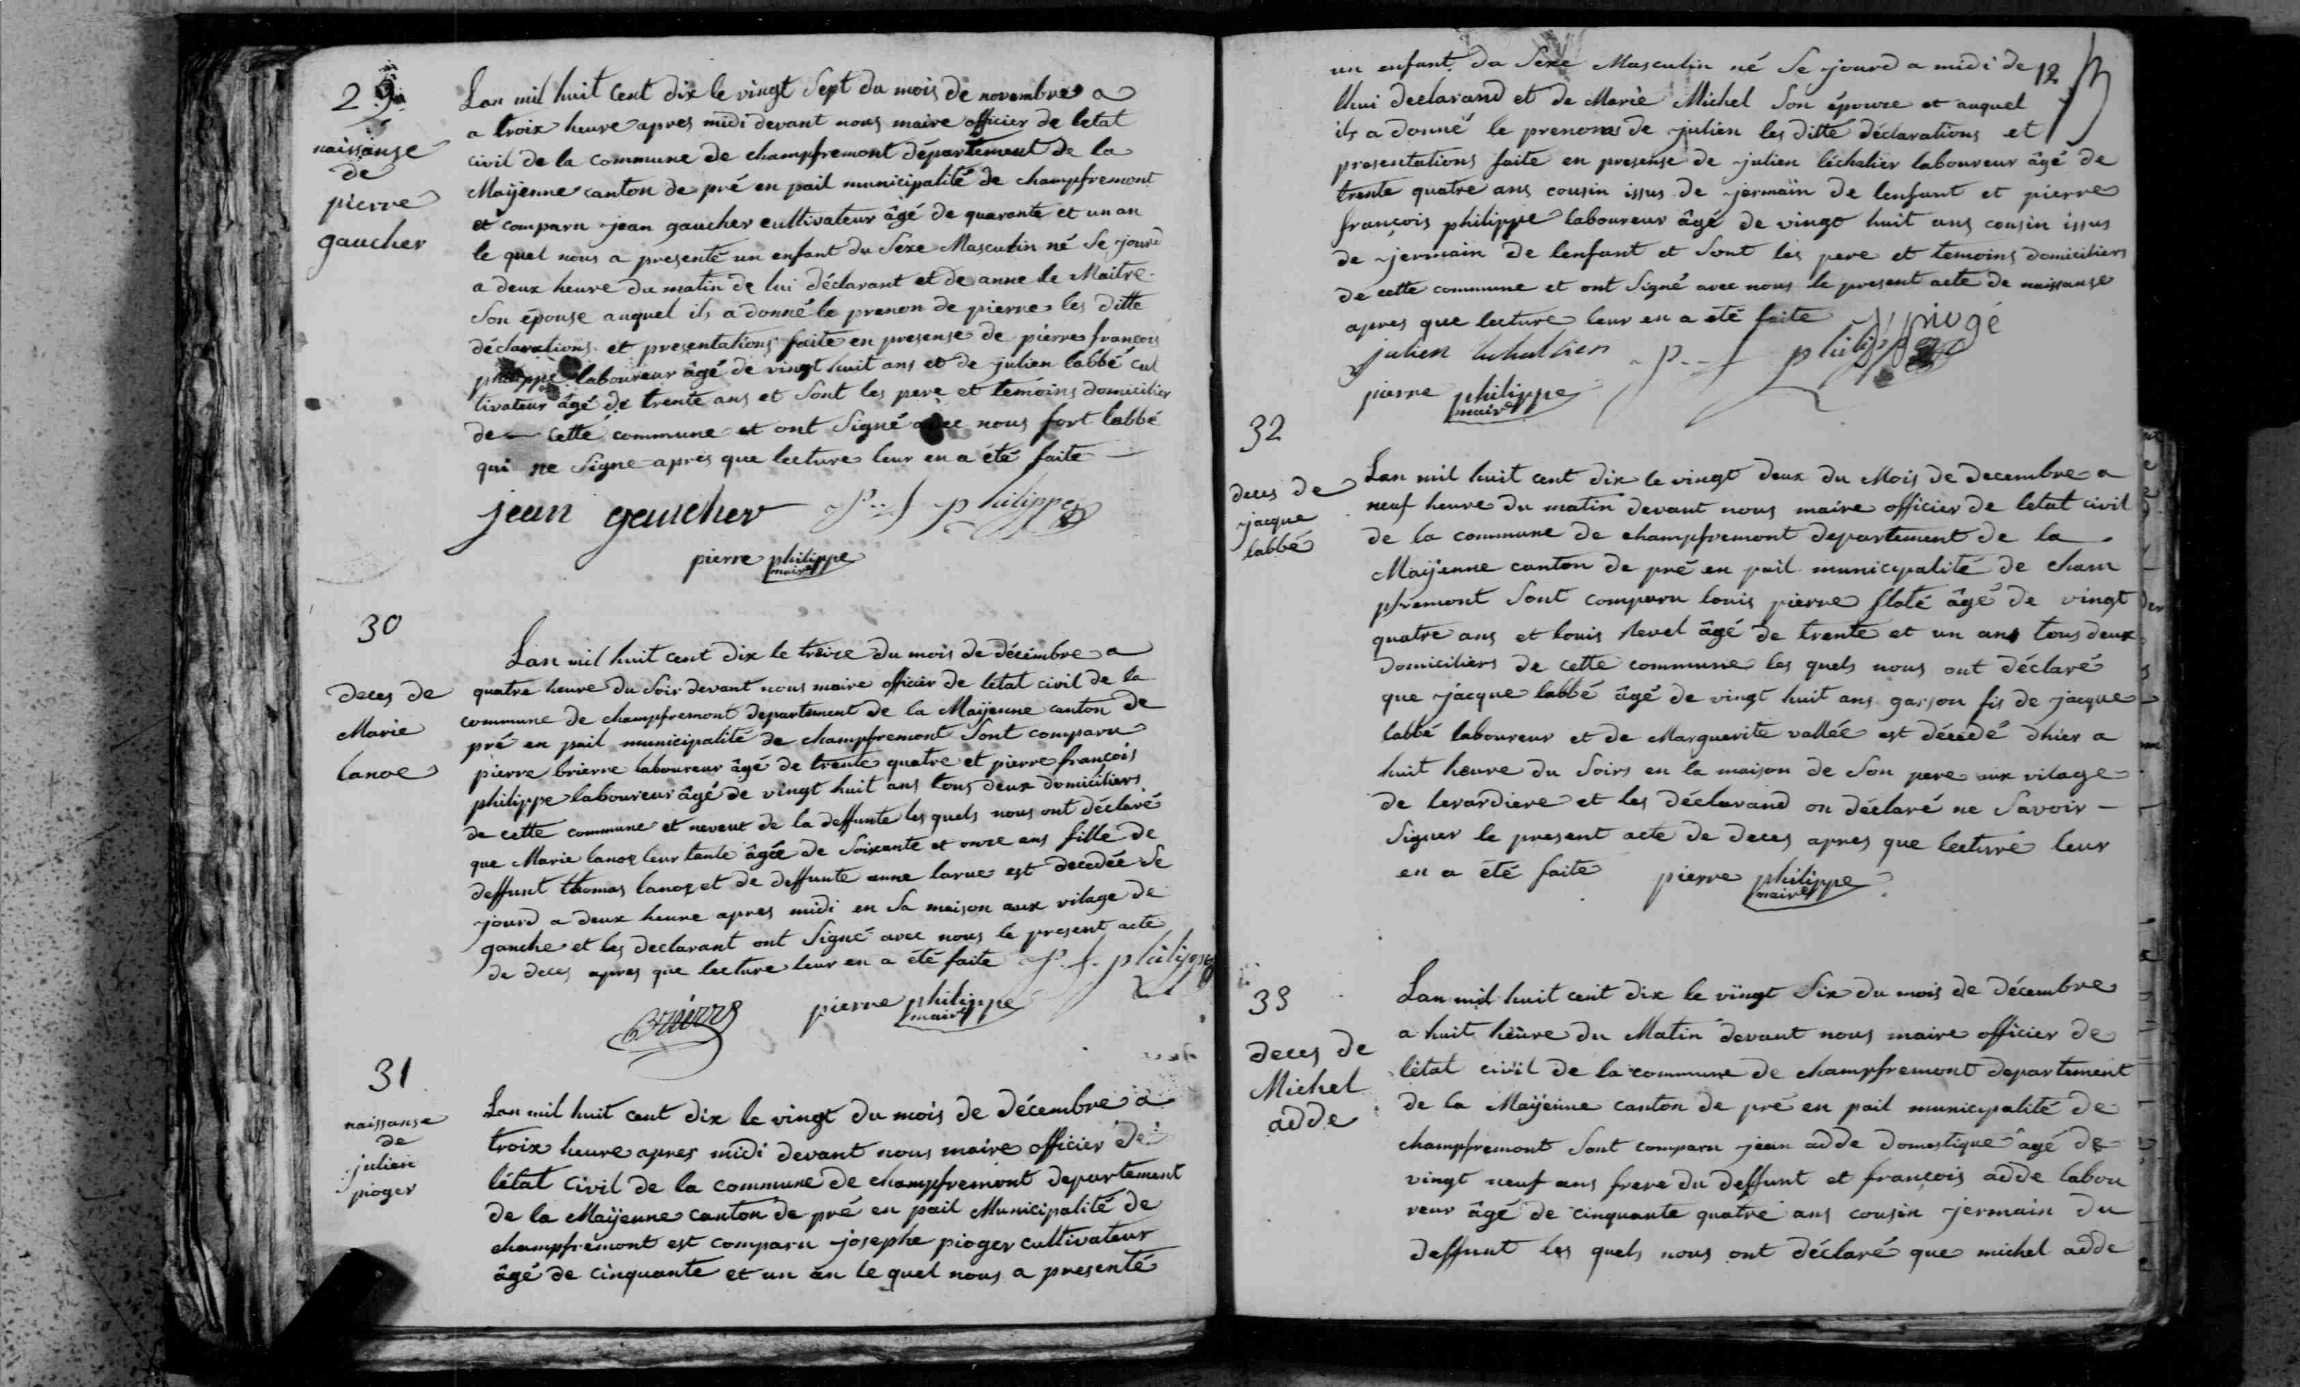 29
naissanse
de
pierre
gaucher
Lan mil huit Cent dix le vingt Sept du mois de novembre a
a troix heure apres midi devant nous maire officier de letat
civil de la Commune de champfremont département de la
Maÿenne canton de pré en pail municipalité de champfremont
et comparu jean gaucher cultivateur âgé de quarante et un an
le quel nous a presenté un enfant du Sexe Masculin né Se jourd
a deux heure du matin de lui déclarant et de anne le Maitre
Son épouse auquel ils a donné le prenon de pierre les ditte
déclarations et presentations faite en presense de pierre francois
philippe laboureur âgé de vingt huit ans et de julien labbé cul
tivateur âgé de trente ans et Sont les pere et temoins domicilier
de cette commune et ont Signé avec nous fort labbé
qui ne Signe apres que lecture leur en a été faite
jean gaucher p. f. philippe
pierre philippe
maire
30
deces de
Marie
lanoe
Lan mil huit cent dix le treize du mois de décembre a
quatre heure du Soir devant nous maire officier de létat civil de la
commune de champfremont departement de la Maÿenne canton de
pré en pail municipalité de champfremont Sont comparu
pierre brierre laboureur âgé de trente quatre et pierre francois
philippe laboureur âgé de vingt huit ans tous deux domiciliers
de cette commune et neveux de la deffunte les quels nous ont déclaré
que Marie lanoe leur tante âgée de Soixante et onze ans fille de
deffunt thomas lanoe et de deffunte anne larue est decedée Se
jourd a deux heure apres midi en Sa maison aux vilage de
ganche et les declarant ont Signé avec nous le present acte
de deces apres que lecture leur en a été faite p. f. philippe
Brierre pierre philippe
maire
31
naissanse
de
julien
pioger
Lan mil huit cent dix le vingt du mois de décembre a
troix heure apres midi devant nous maire officier de
létat Civil de la commune de champfremont departement
de la Maÿenne canton de pré en pail Municipalité de
champfremont est comparu josephe pioger cultivateur
âgé de cinquante et un an le quel nous a presenté
12
un enfant du Sexe Masculin né Se jourd a midi de
lhui declarand et de Marie Michel Son épouze et auquel
ils a donné le prenoms de julien les ditte déclarations et
presentations faite en presense de julien léchalier laboureur âgé de
trente quatre ans cousin issus de jermain de lenfant et pierre
françois philippe laboureur âgé de vingt huit ans cousin issus
de jermain de lenfant et Sont les pere et temoins domiciliers
de cette commune et ont Signé avec nous le present acte de naissanse
apres que lecture leur en a été faite j piogé
julien lechallier p. f. philippe
pierre philippe
maire
32
deces de
jacque
labbé
Lan mil huit cent dix le vingt deux du Mois de decembre a
neuf heure du matin devant nous maire officier de letat civil
de la commune de champfremont departement de la
Maÿenne canton de pré en pail municipalité de cham
pfremont Sont comparu louis pierre floté âgé de vingt
quatre ans et louis revel âgé de trente et un ans tous deux
domiciliers de cette commune les quels nous ont déclaré
que jacque labbé âgé de vingt huit ans garson fis de jacque
labbé laboureur et de Marguerite vallée est décédé dhier a
huit heure du Soirs en la maison de Son pere aux vilage
de levardiere et les déclarand on déclaré ne Savoir
Signer le present acte de deces apres que lecture leur
en a été faite pierre philippe
maire
33
deces de
Michel
adde
Lan mil huit cent dix le vingt Six du mois de décembre
a huit heure du Matin devant nous maire officier de
létat civil de la commune de champfremont departement
de la Maÿenne canton de pré en pail municipalité de
champfremont Sont comparu jean adde domestique âgé de
vingt neuf ans frere du deffunt et françois adde labou
reur âgé de cinquante quatre ans cousin jermain du
deffunt les quels nous ont déclaré que michel adde